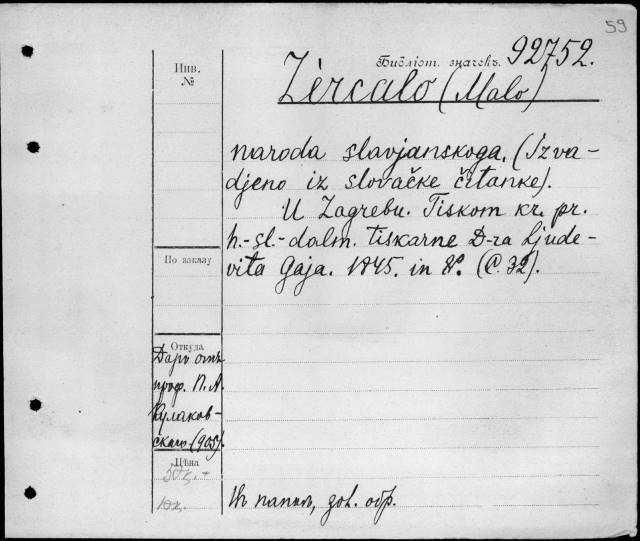 59
Библіот. значекъ. 92752.
Инв.
№
Zèrcalo (Malo)
naroda slavjanskoga. (Izva-
djeno iz slovačke čitanke).
U Zagrebu. Tiskom kr. pr.
h.-sl.-dalm. tiskarne D-ra Ljude-
vita Gaja. 1845. in 8º. (C. 32).
По заказу
Откуда
Даръ отъ
проф. П. А.
Кулаков-
скаго (905).
Цѣна
50к.
10к.
въ папкѣ,